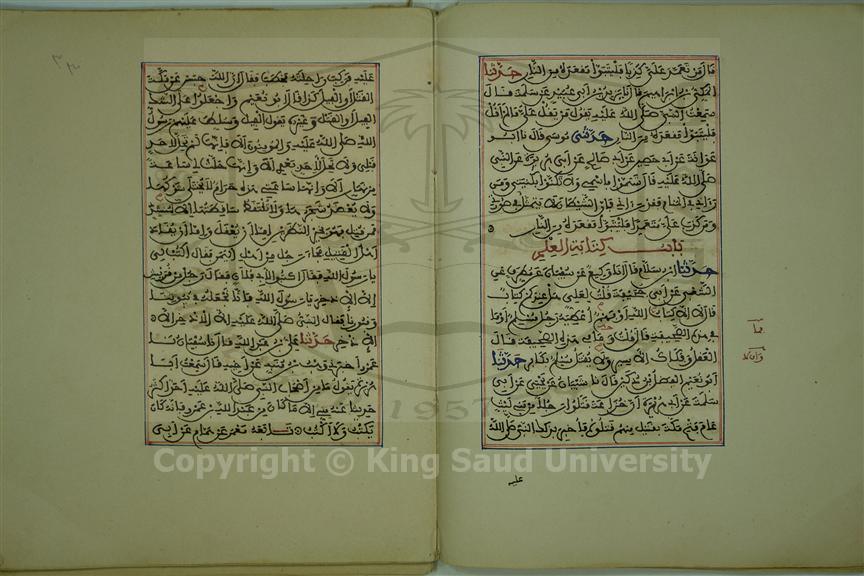 قال من تعمد علي كذبا فليتبوأ مقعده من النار حدثنا
المكي بن ابراهيم قال نا يزيد بن أبي عبيد عن سلمة قال
سمعت النبي صلى الله عليه يقول من يقل علي ما لم أقل
فليتبوأ مقعده من النار حدثني موسى قال نا أبو
عوانة عن أبي حصين عن أبي صالح عن أبي هريرة عن النبي
صلى الله عليه قال تسموا باسمي ولا تكتنوا بكنيتي ومن
رآني في المنام فقد رآني فإن الشيطان لا يتمثل في صورتي
ومن كذب علي متعمدا فليتبوأ مقعده من النار
باب كتابة العلم
حدثنا ابن سلام قال أنا وكيع عن سفيان عن مطرف عن
الشعبي عن أبي جحيفة قلت لعلي هل عندكم كتاب
قال لا إلا كتاب الله أو فهم أعطيه رجل مسلم أو ما
في هذه الصحيفة قال قلت وما في هذه الصحيفة قال
العقل وفكاك الأسير ولا يقتل مسلم بكافر حدثنا
أبو نعيم الفضل بن دكين قال نا شيبان عن يحيى عن أبي
سلمة عن أبي هريرة أن خزاعة قتلوا رجلا من بني ليث
عام فتح مكة بقتيل منهم قتلوه فأخبر بذلك النبي صلى الله
عليه
عليه فركب راحلته فخطب فقال إن الله حبس عن مكة
القتل أو الفيل كذا قال أبو نعيم واجعلوا على الشك
الفيل أو القتل وغيره يقول الفيل وسلط عليهم رسول
الله صلى الله عليه والمؤمنون ألا فإنها لم تحل لأحد
قبلي ولا تحل لأحد بعدي ألا وإنها حلت لي ساعة
من نهار ألا وإنها ساعتي هذه حرام لا يختلى شوكها
ولا يعضد شجرها ولا تلتقط ساقطتها إلا لمنشد
فمن قتل فهو بخير النظرين إما أن يعقل وإما أن يقاد
أهل القتيل فجاء رجل من أهل اليمن فقال اكتب لي
يا رسول الله فقال اكتبوا لأبي فلان فقال رجل من قريش
إلا الإذخر يا رسول الله فإنا نجعله في بيوتنا
وقبورنا فقال النبي صلى الله عليه إلا الإذخر إلا
الإذخر حدثنا علي بن عبد الله قال نا سفيان نا
عمرو أخبرني وهب بن منبه عن أخيه قال سمعت أبا
هريرة يقول ما من أصحاب النبي صلى الله عليه أحد أكثر
حديثا عنه مني إلا ما كان من عبد الله بن عمرو فإنه كان
يكتب ولا أكتب تابعه معمر عن همام عن أبي
1957
Copyright © King Saud University